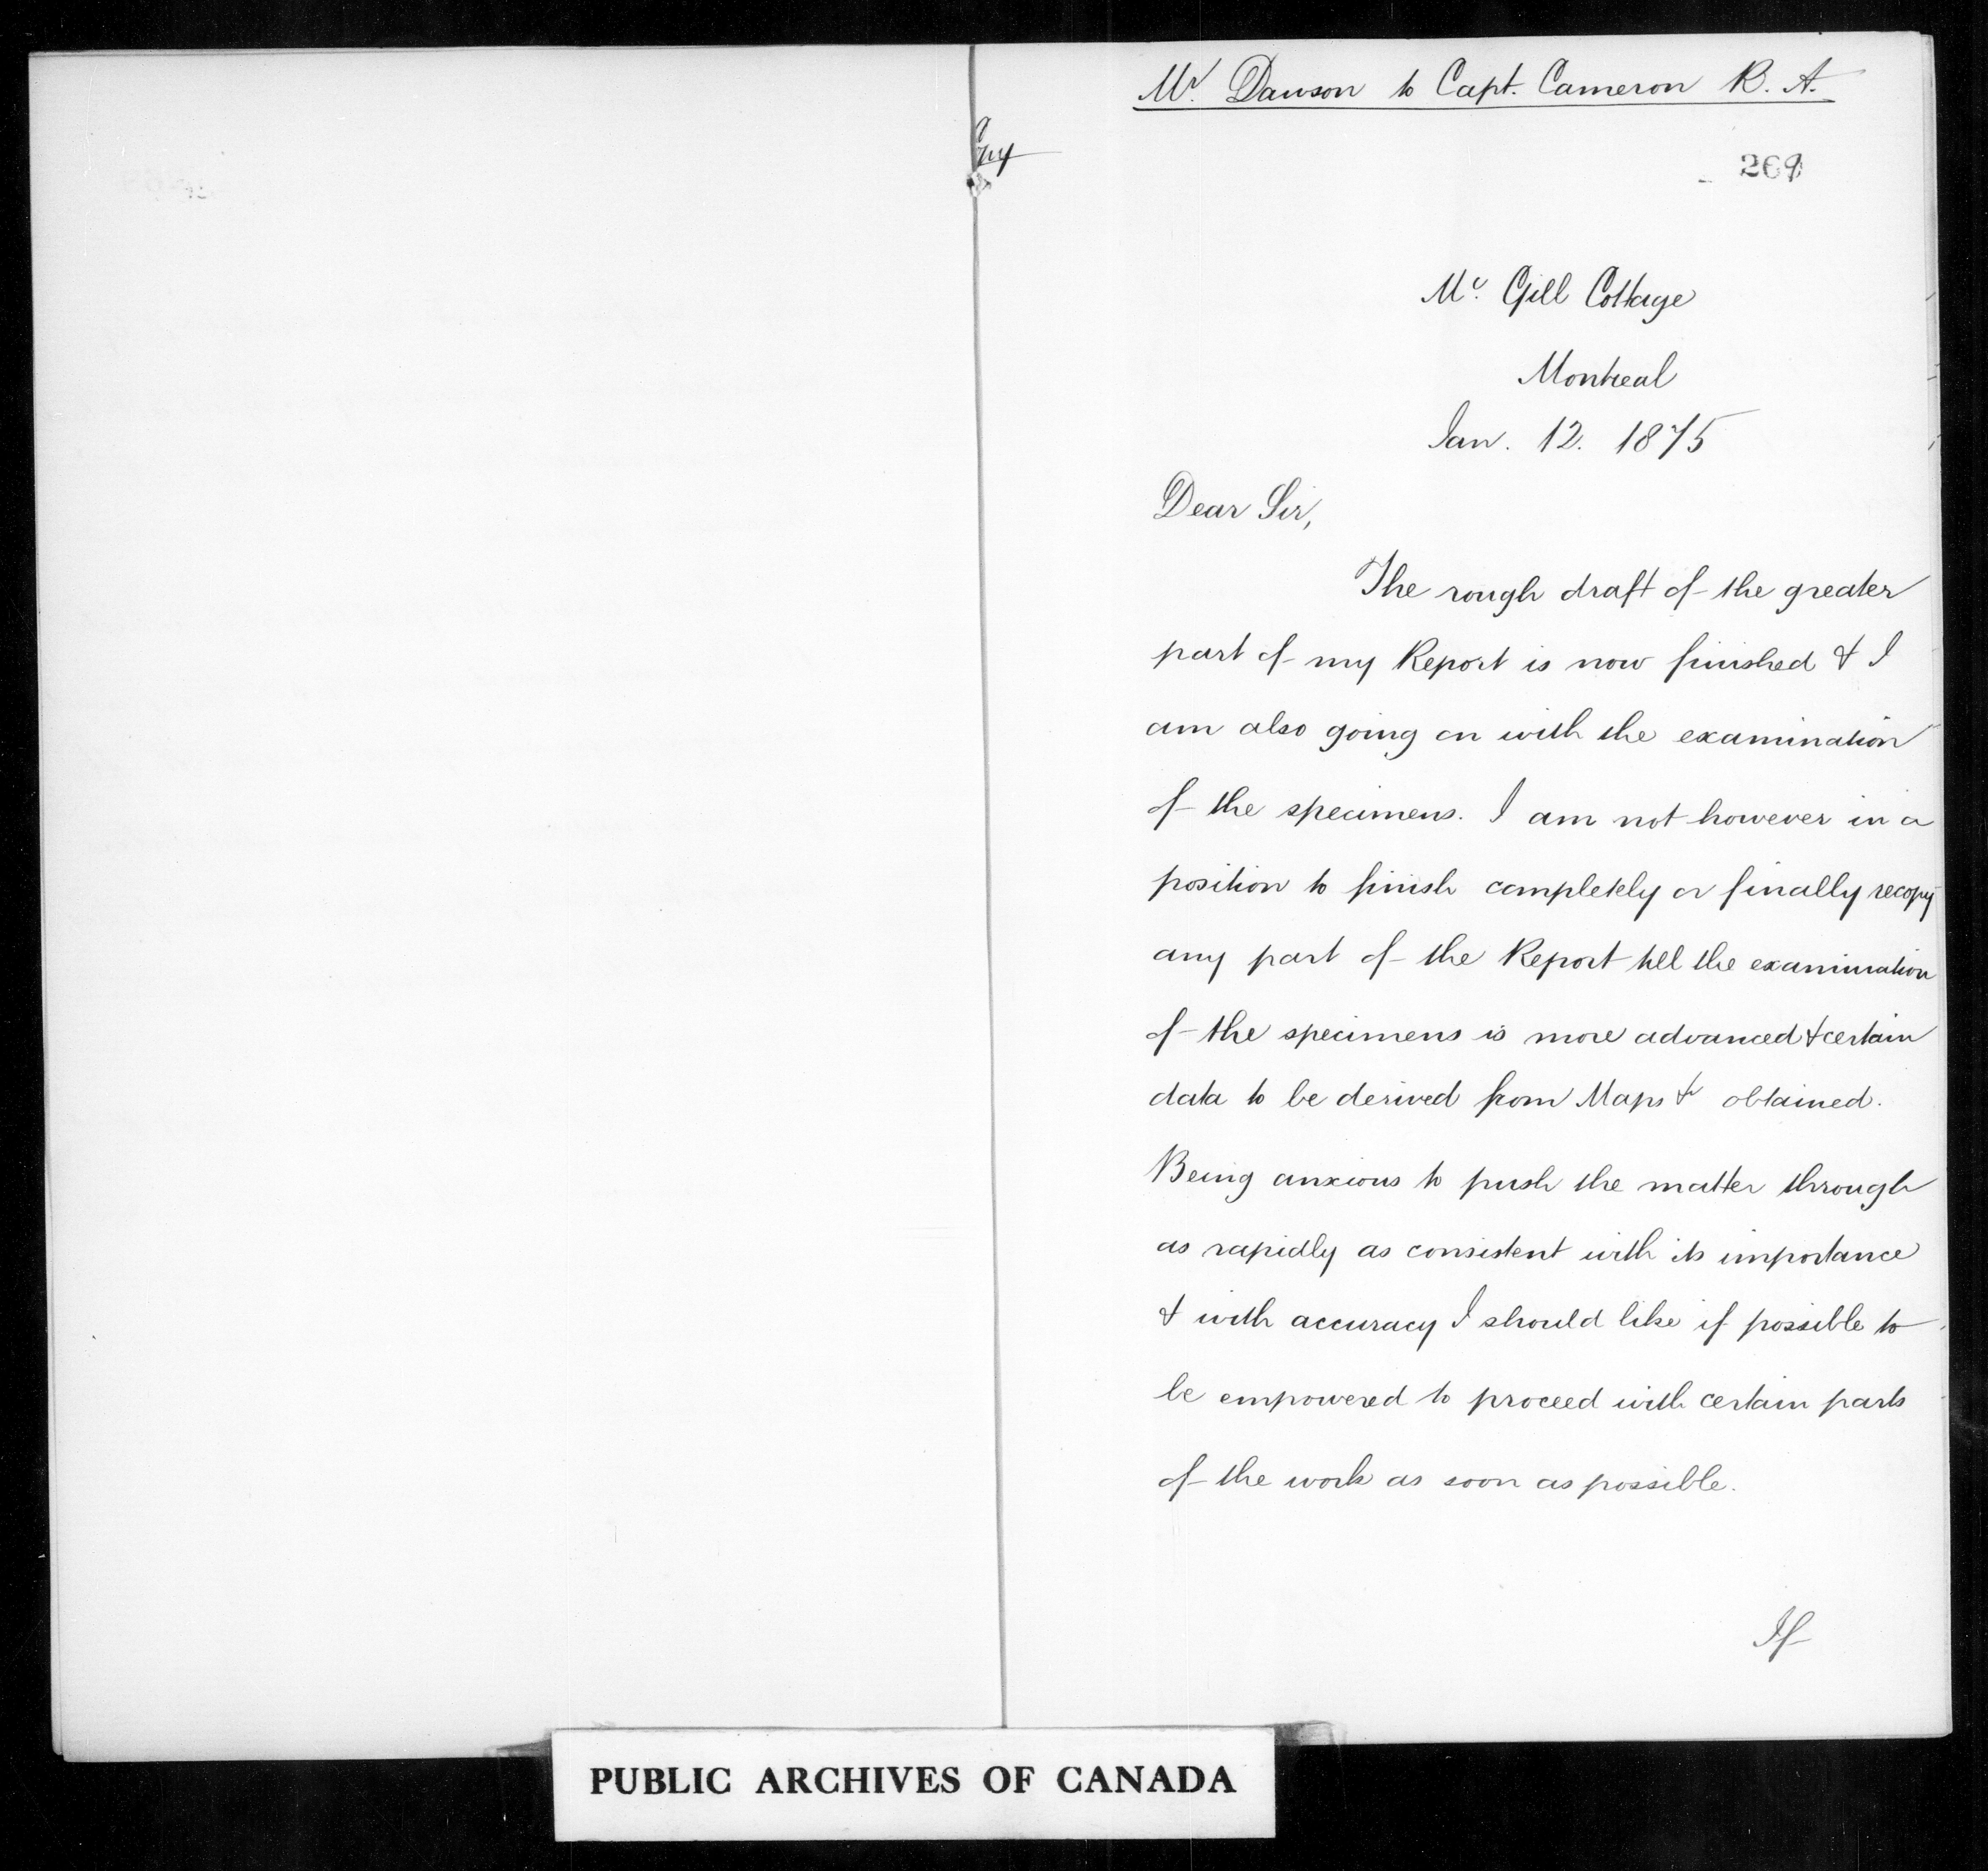 Mr. Dawson to Capt. Cameron R. A.
269
Mc. Gill Cottage
Montreal
Jan. 12. 1875
Dear Sir,
The rough draft of the greater
part of my Report is now finished & I
am also going on with the examination
of the specimens. I am not however in a
position to finish completely or finally recopy
any part of the Report till the examination
of the specimens is more advanced & certain
data to be derived from Maps &c obtained.
Being anxious to push the matter through
as rapidly as consistent with its importance
& with accuracy I should like if possible to
be empowered to proceed with certain parts
of the work as soon as possible.
If
PUBLIC ARCHIVES OF CANADA